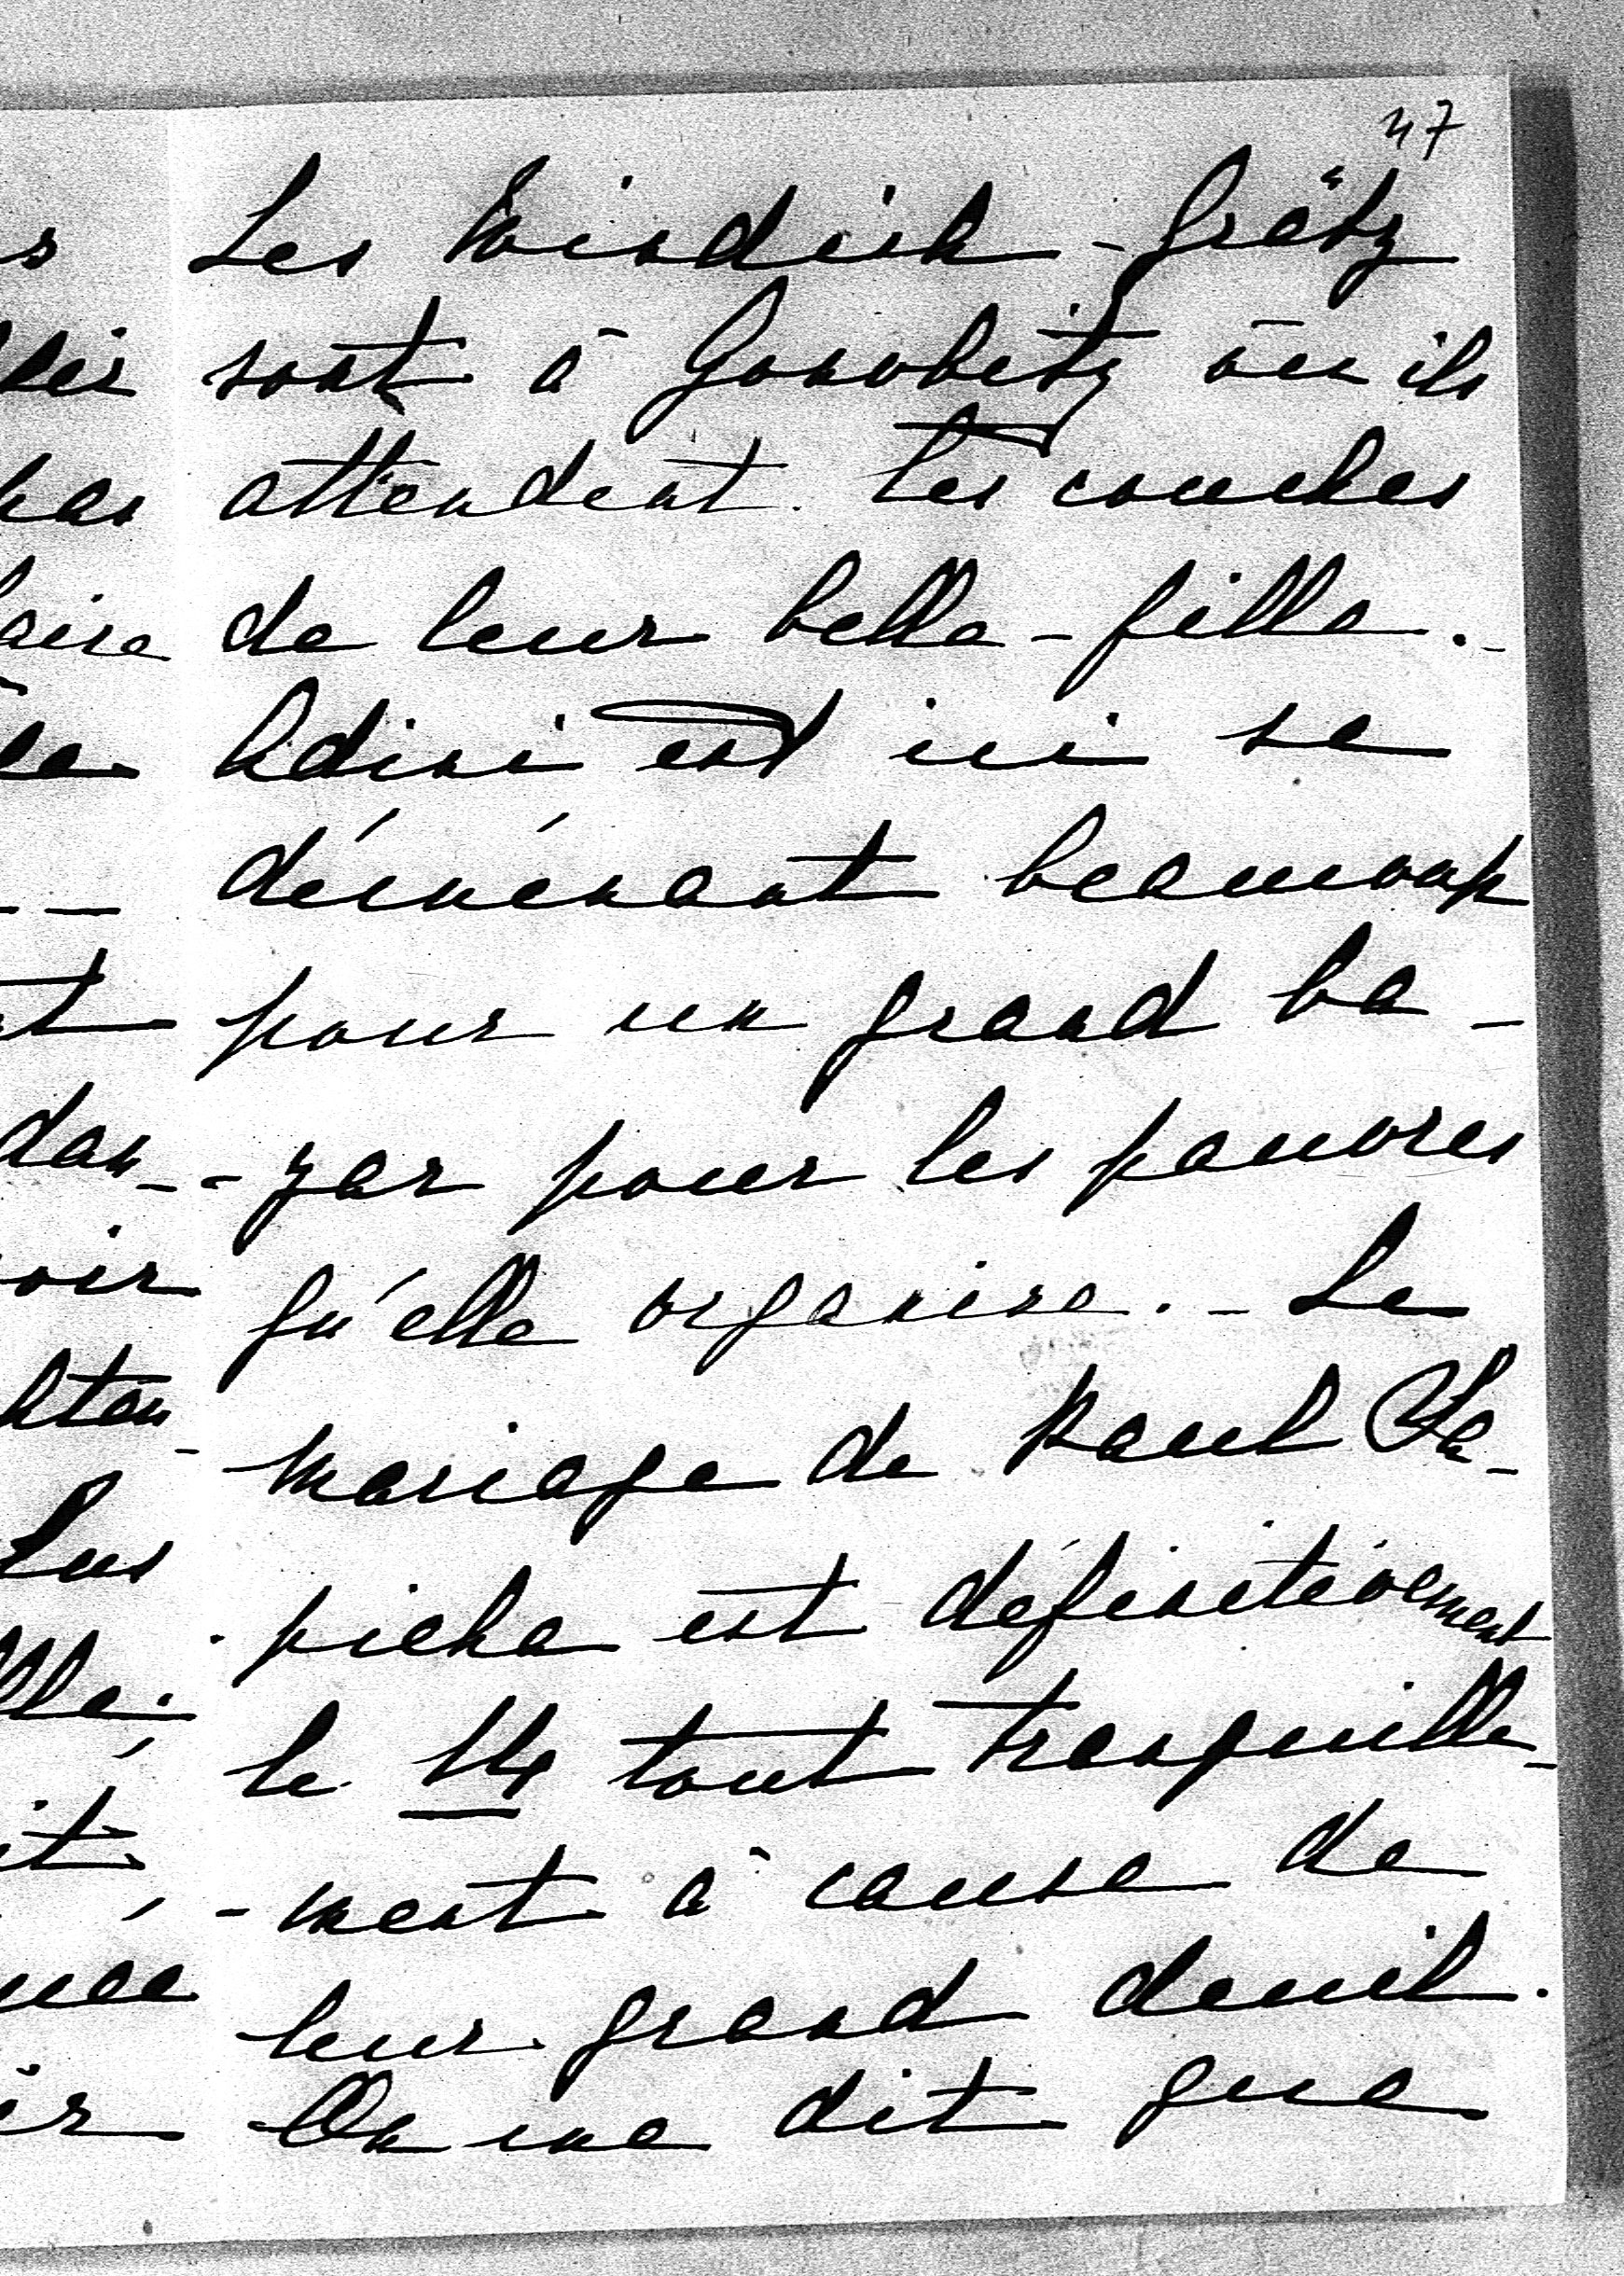 47
Les Windisch-Grätz
sont à Gonobitz où ils
attendent les couches
de leur belle-fille. -
est ici se
démenant beaucoup
pour un grand ba-
-zar pour les pauvres
qu'elle organise. - Le
mariage de Paul Sa-
pieha est définitivement
le 14 tout tranquille-
-ment à cause de
leur grand deuil.
On me dit que